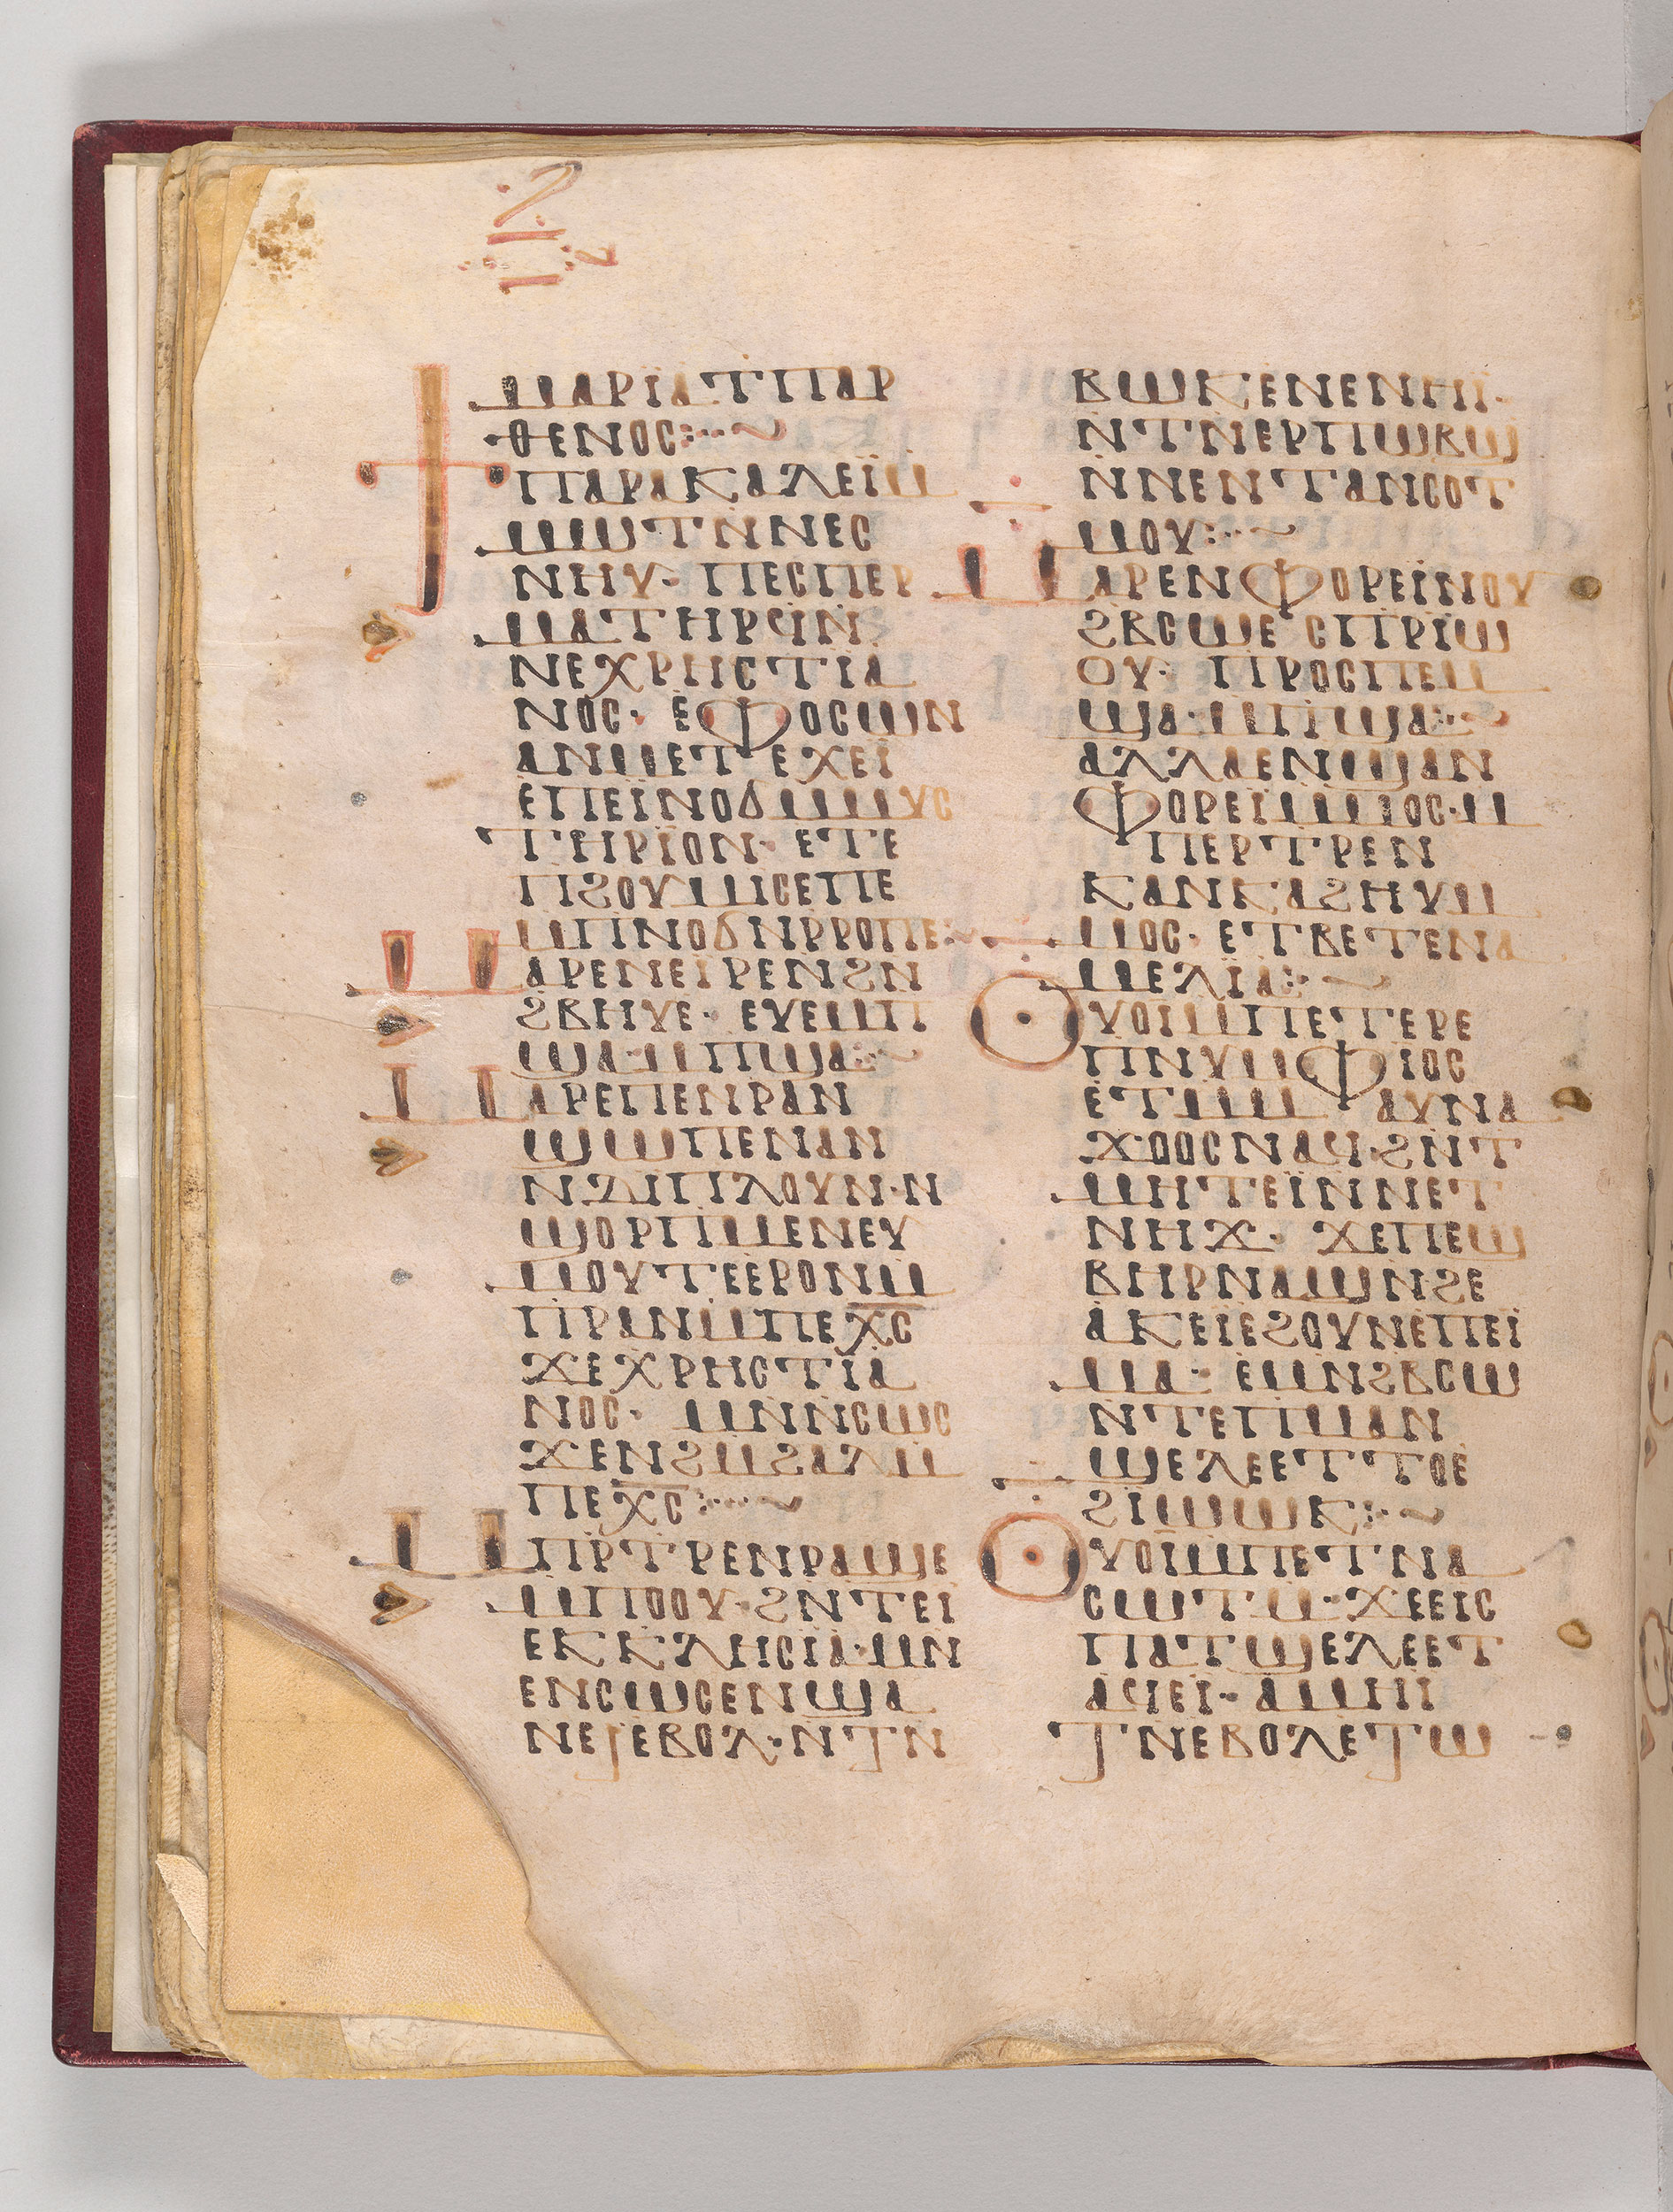 ⲙⲁⲣⲓⲁⲧⲡⲁⲣ
ⲑⲉⲛⲟⲥ:··~
ϯⲡⲁⲣⲁⲕⲁⲗⲉⲓⲙ
ⲙⲱⲧⲛⲛⲉⲥ
ⲛⲏⲩ· ⲡⲉⲥⲡⲉⲣ
ⲙⲁⲧⲏⲣϥⲛ
ⲛⲉⲭⲣⲏⲥⲧⲓⲁ
ⲛⲟⲥ· ⲉⲫⲟⲥⲱⲛ
ⲁⲛⲙⲉⲧⲉⲭⲉⲓ
ⲉⲡⲉⲓⲛⲟϭⲙⲙⲩⲥ
ⲧⲏⲣⲓⲟⲛ· ⲉⲧⲉ
ⲡϩⲟⲩⲙⲓⲥⲉⲡⲉ
ⲙⲡⲛⲟϭⲛⲣⲣⲟⲡⲉ:~
ⲙⲁⲣⲉⲛⲉⲓⲣⲉⲛϩⲛ
ϩⲃⲏⲩⲉ· ⲉⲩⲉⲙⲡ
ϣⲁ·ⲙⲡϣⲁ:~
ⲙⲁⲣⲉⲡⲉⲛⲣⲁⲛ
ϣⲱⲡⲉⲛⲁⲛ
ⲛⲇⲓⲡⲗⲟⲩⲛ·ⲛ
ϣⲟⲣⲡⲙⲉⲛⲉⲩ
ⲙⲟⲩⲧⲉⲉⲣⲟⲛⲙ
ⲡⲣⲁⲛⲙⲡⲉⲭ̅ⲥ̅
ϫⲉⲭⲣⲏⲥⲧⲓⲁ
ⲛⲟⲥ· ⲙⲛⲛⲥⲱⲥ
ϫⲉⲛϩⲙϩⲁⲗⲙ
ⲡⲉⲭ̅ⲥ̅:··~
ⲙⲡⲣⲧⲣⲉⲛⲣⲁϣⲉ
ⲙⲡⲟⲟⲩ·ϩⲛⲧⲉⲓ
ⲉⲕⲕⲗⲏⲥⲓⲁ·ⲙⲛ
ⲉⲛⲥⲱⲥⲉⲛϣⲁ
ⲛⲉⲓⲉⲃⲟⲗ·ⲛⲧⲛ
ⲃⲱⲕⲉⲛⲉⲛⲏⲓ·
ⲛⲧⲛⲉⲣⲡⲱⲃϣ
ⲛⲛⲉⲛⲧⲁⲛⲥⲟⲧ
ⲙⲟⲩ:·~
ⲙⲁⲣⲉⲛⲫⲟⲣⲉⲓⲛⲟⲩ
ϩⲃⲥⲱⲉ ⲥⲡⲣⲓⲱ
ⲟⲩ· ⲡⲣⲟⲥⲡⲉⲙ
ϣⲁ·ⲙⲡϣⲁ:~
ⲁⲗⲗⲁⲉⲛϣⲁⲛ
ⲫⲟⲣⲉⲓⲙⲙⲟⲥ·ⲙ
ⲡⲉⲣⲧⲣⲉⲛ
ⲕⲁⲛⲕⲁϩⲏⲩⲙ
ⲙⲟⲥ· ⲉⲧⲃⲉⲧⲉⲛⲁ
ⲙⲉⲗⲓⲁ:~
ⲟⲩⲟⲓⲙⲡⲉⲧⲉⲣⲉ
ⲡⲛⲩⲙⲫⲓⲟⲥ
ⲉⲧⲙⲙⲁⲩⲛⲁ
ϫⲟⲟⲥⲛⲁϥ·ϩⲛⲧ
ⲙⲏⲧⲉⲓⲛⲛⲉⲧ
ⲛⲏϫ· ϫⲉⲡⲉϣ
ⲃⲏⲣⲛⲁϣⲛϩⲉ
ⲁⲕⲉⲓⲉϩⲟⲩⲛⲉⲡⲉⲓ
ⲙⲁ· ⲉⲙⲛϩⲃⲥⲱ
ⲛⲧⲉⲡⲙⲁⲛ
ϣⲉⲗⲉⲉⲧ ⲧⲟⲉ
ϩⲓⲱⲱⲕ:·~
ⲟⲩⲟⲓⲙⲡⲉⲧⲛⲁ
ⲥⲱⲧⲙ·ϫⲉⲉⲓⲥ
ⲡⲁⲧϣⲉⲗⲉⲉⲧ
ⲁϥⲉⲓ· ⲁⲙⲏⲓ
ⲧⲛⲉⲃⲟⲗⲉⲧⲱ